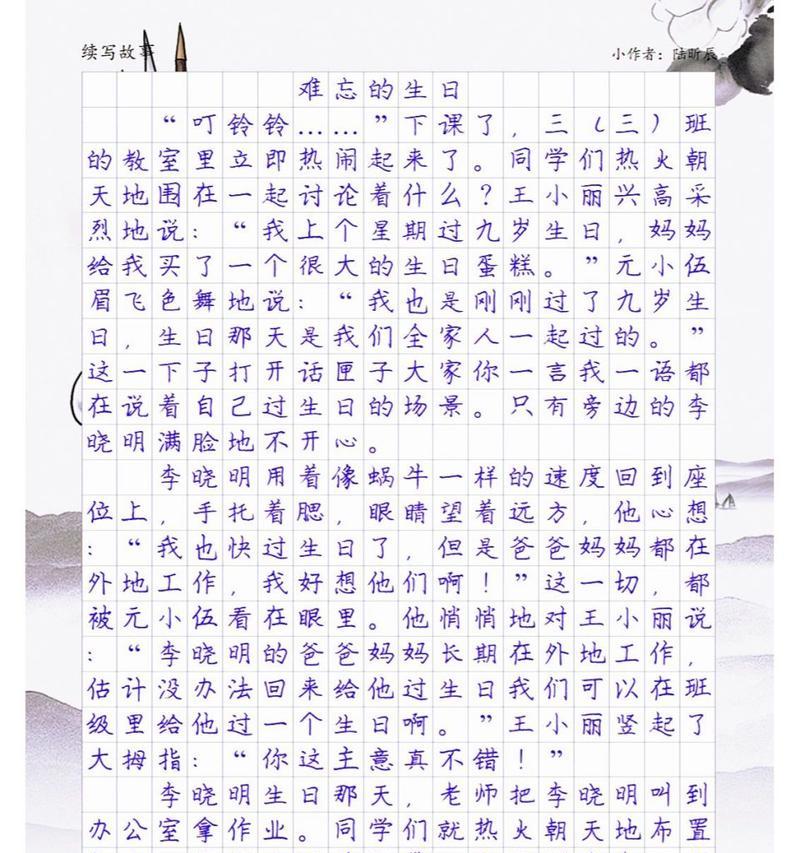 续写故事
小作者：陆昕辰
难忘的生日
“叮铃铃……”下课了，三（三）班
的教室里立即热闹起来了。同学们热火朝
天地围在一起讨论着什么？王小丽兴高采
烈地说：“我上个星期过九岁生日，妈妈
给我买了一个很大的生日蛋糕。”元小伍
眉飞色舞地说：“我也是刚刚过了九岁生
日，生日那天是我们全家人一起过的。”
这一下子打开话匣子大家你一言我一语都
在说着自己过生日的场景。只有旁边的李
晓明满脸地不开心。
李晓明用着像蜗牛一样的速度回到座
位上，手托着腮，眼睛望着远方，他心想
：“我也快过生日了，但是爸爸妈妈都在
外地工作，我好想他们啊！”这一切，都
被元小伍看在眼里。他悄悄地对王小丽说
：“李晓明的爸爸妈妈长期在外地工作，
估计没办法回来给他过生日我们可以在班
级里给他过一个生日啊。”王小丽竖起了
大拇指：“你这主意真不错！”
李晓明生日那天，老师把李晓明叫到
办公室拿作业。同学们就热火朝天地布置